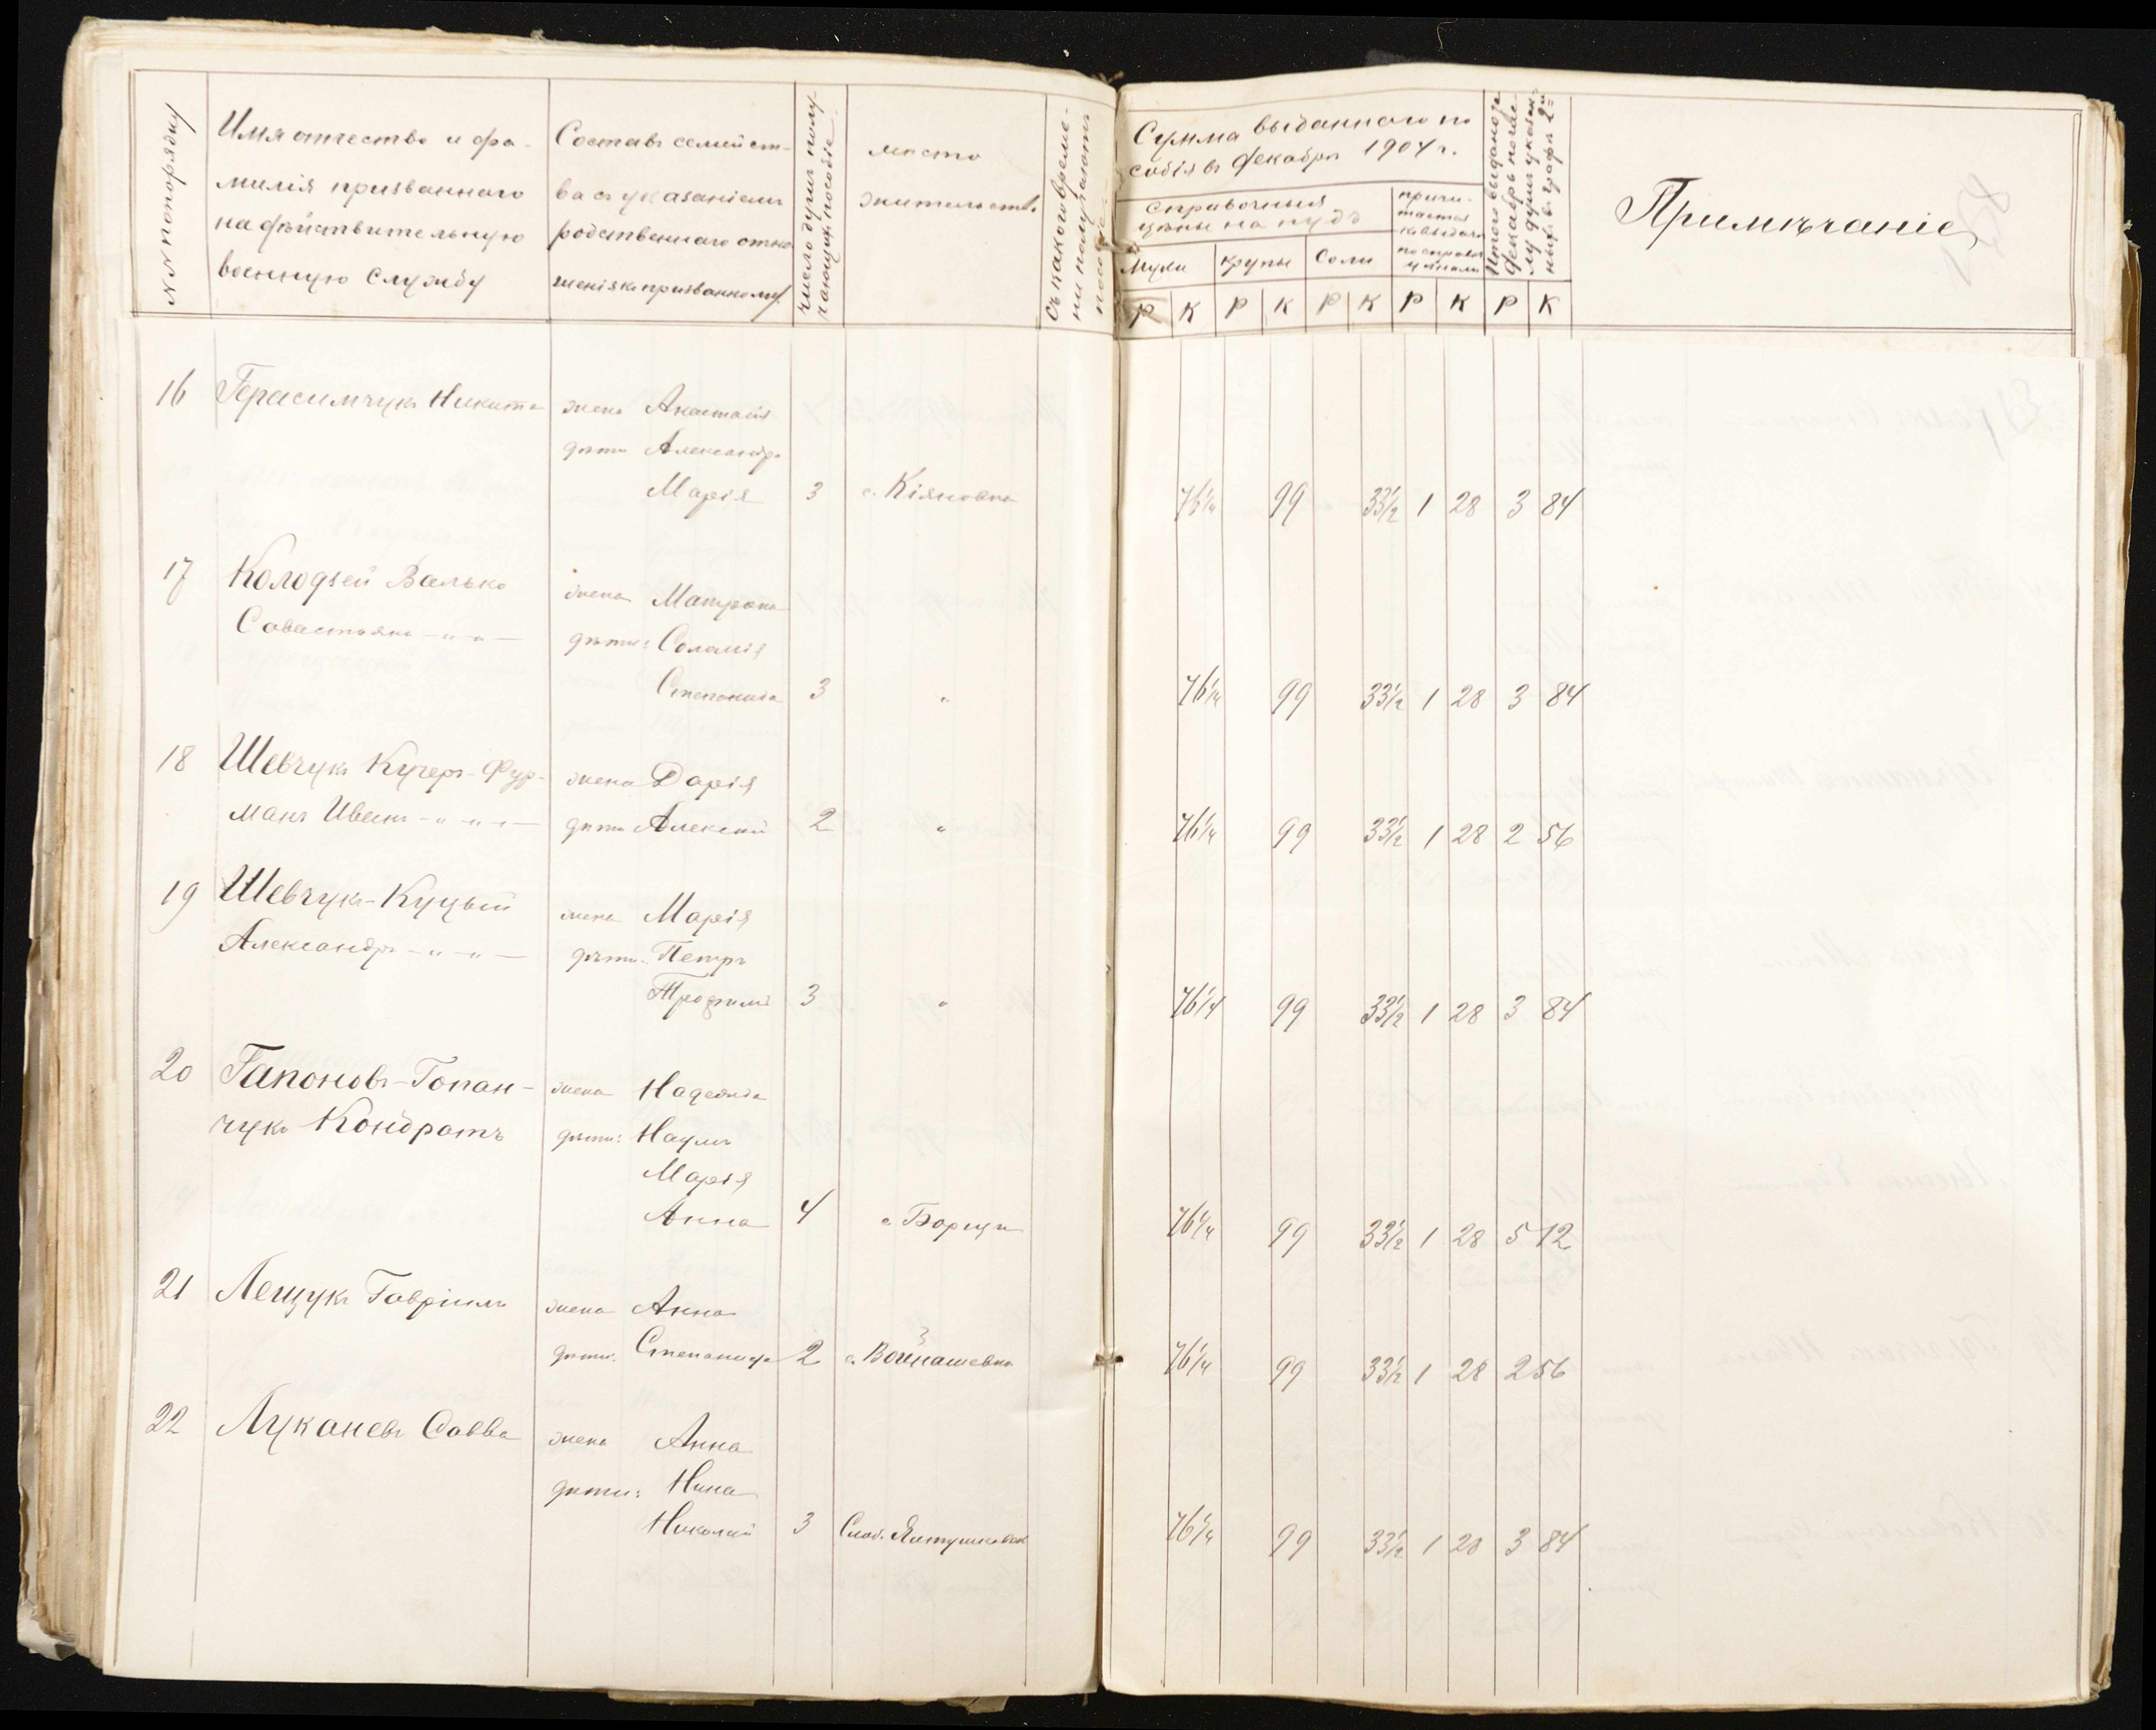 №№ по порядку
Имя отчество и фа-
милія призваннаго
на дѣйствительную
военную службу
Составъ семейст-
ва съ указаніемъ
родственнаго отно
шенія къ призванному
число душъ полу-
чающихъ пособіе
мѣсто
жительства
Съ какого време-
ни получаютъ
пособіе
Сумма выданнаго по
собія въ декабрѣ 1904 г.
справочныя
цѣны на пудъ
муки
крупы
соли
причи-
тается
къ выдачѣ
по справоч
цѣнамъ
Итого выдано за
декабрь
му душъ указан-
ныхъ въ графѣ 2й
Примѣчаніе
Р К Р К Р К Р К Р К
16 Герасимчукъ Никита жена Анастасія
дѣти Александръ
Марія 3 с. Кіяновка 76 1/4 99 33 1/2 1 28 3 84
17 Колодзей Валько жена Матрона
Савастьянъ - " - " - дѣти: Соломія
Степанида 3 " 76 1/4 99 33 1/2 1 28 3 84
18 Шевчукъ Кучеръ-Фур- жена Дарія
манъ Ивенъ - " - " - дѣти Алексѣй 2 " 76 1/4 99 33 1/2 1 28 2 56
19 Шевчукъ-Куцый жена Марія
Александръ - " - " - дѣти: Петръ
Трофимъ 3 " 76 1/4 99 33 1/2 1 28 3 84
20 Гапоновъ-Гопан- жена Надежда
чукъ Кондратъ дѣти: Наумъ
Марія
Анна 4 с. Борщи 76 1/4 99 33 1/2 1 28 5 12
21 Лещукъ Гавріилъ жена Анна
дѣти: Степанида 2 с. Войнашевка 76 1/4 99 33 1/2 1 28 2 56
22 Луканевъ Савва жена Анна
дѣти: Нина
Николай 3 Слоб. Ялтушковск 76 1/4 99 33 1/2 1 28 3 84